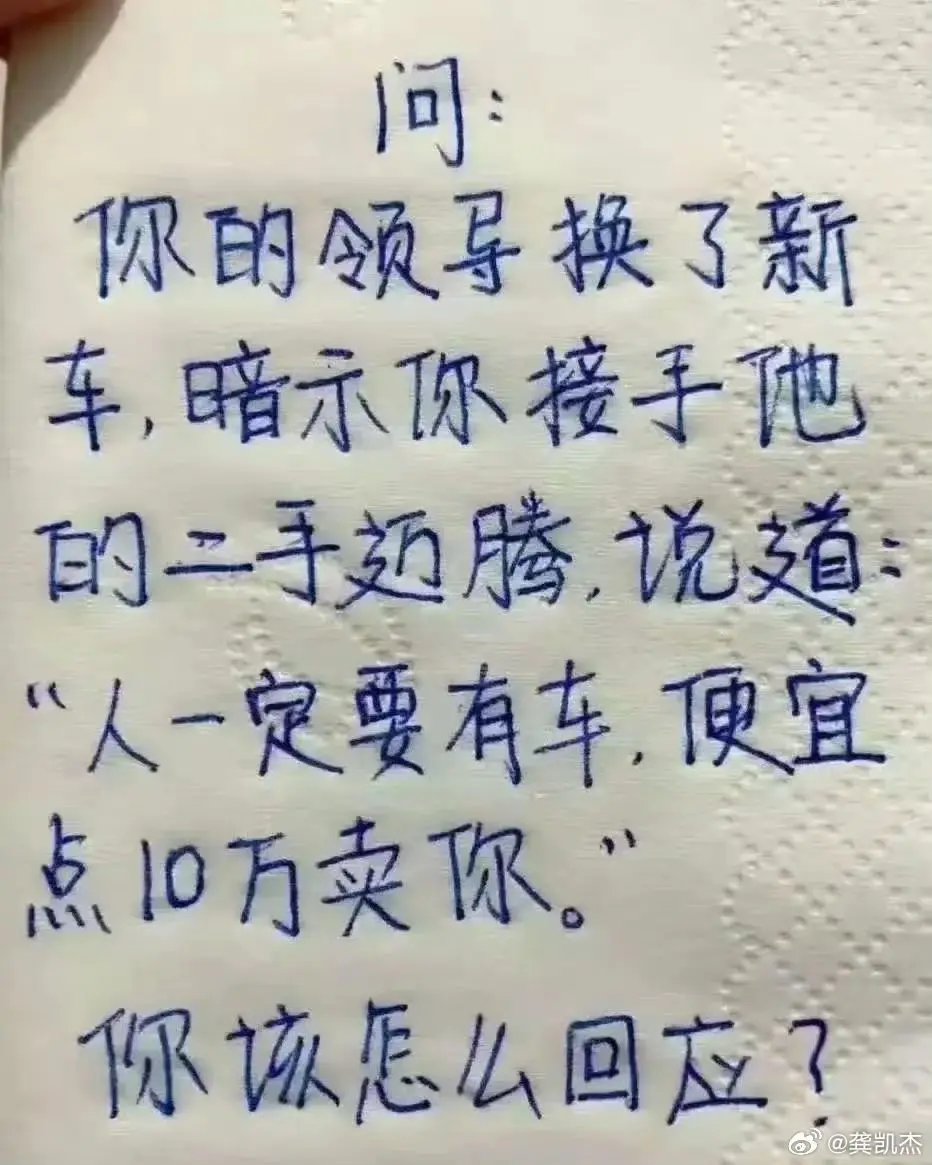 问:
你的领导换了新
车,暗示你接手他
的二手迈腾,说道:
“人一定要有车,便宜
点10万卖你。”
你该怎么回应?
@龚凯杰